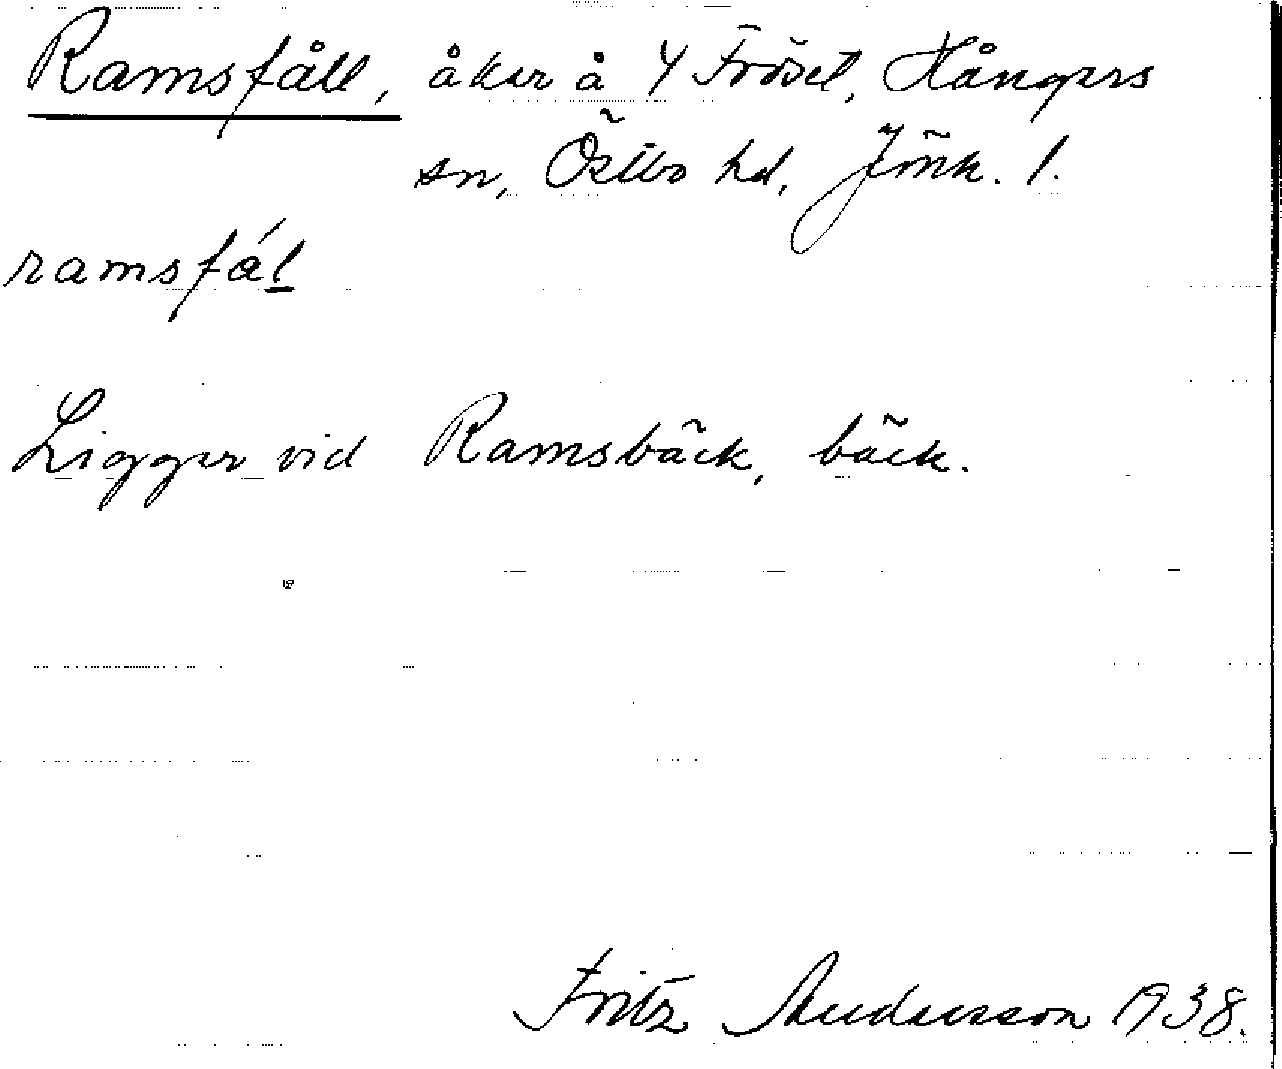 Ramsfåll, åker å Y Frövet, Hångers
sn, Östbo hd, Jönk. l.
ramsfál
Ligger vid Ramsbäck, bäck.
Fritz Andersson 1938.